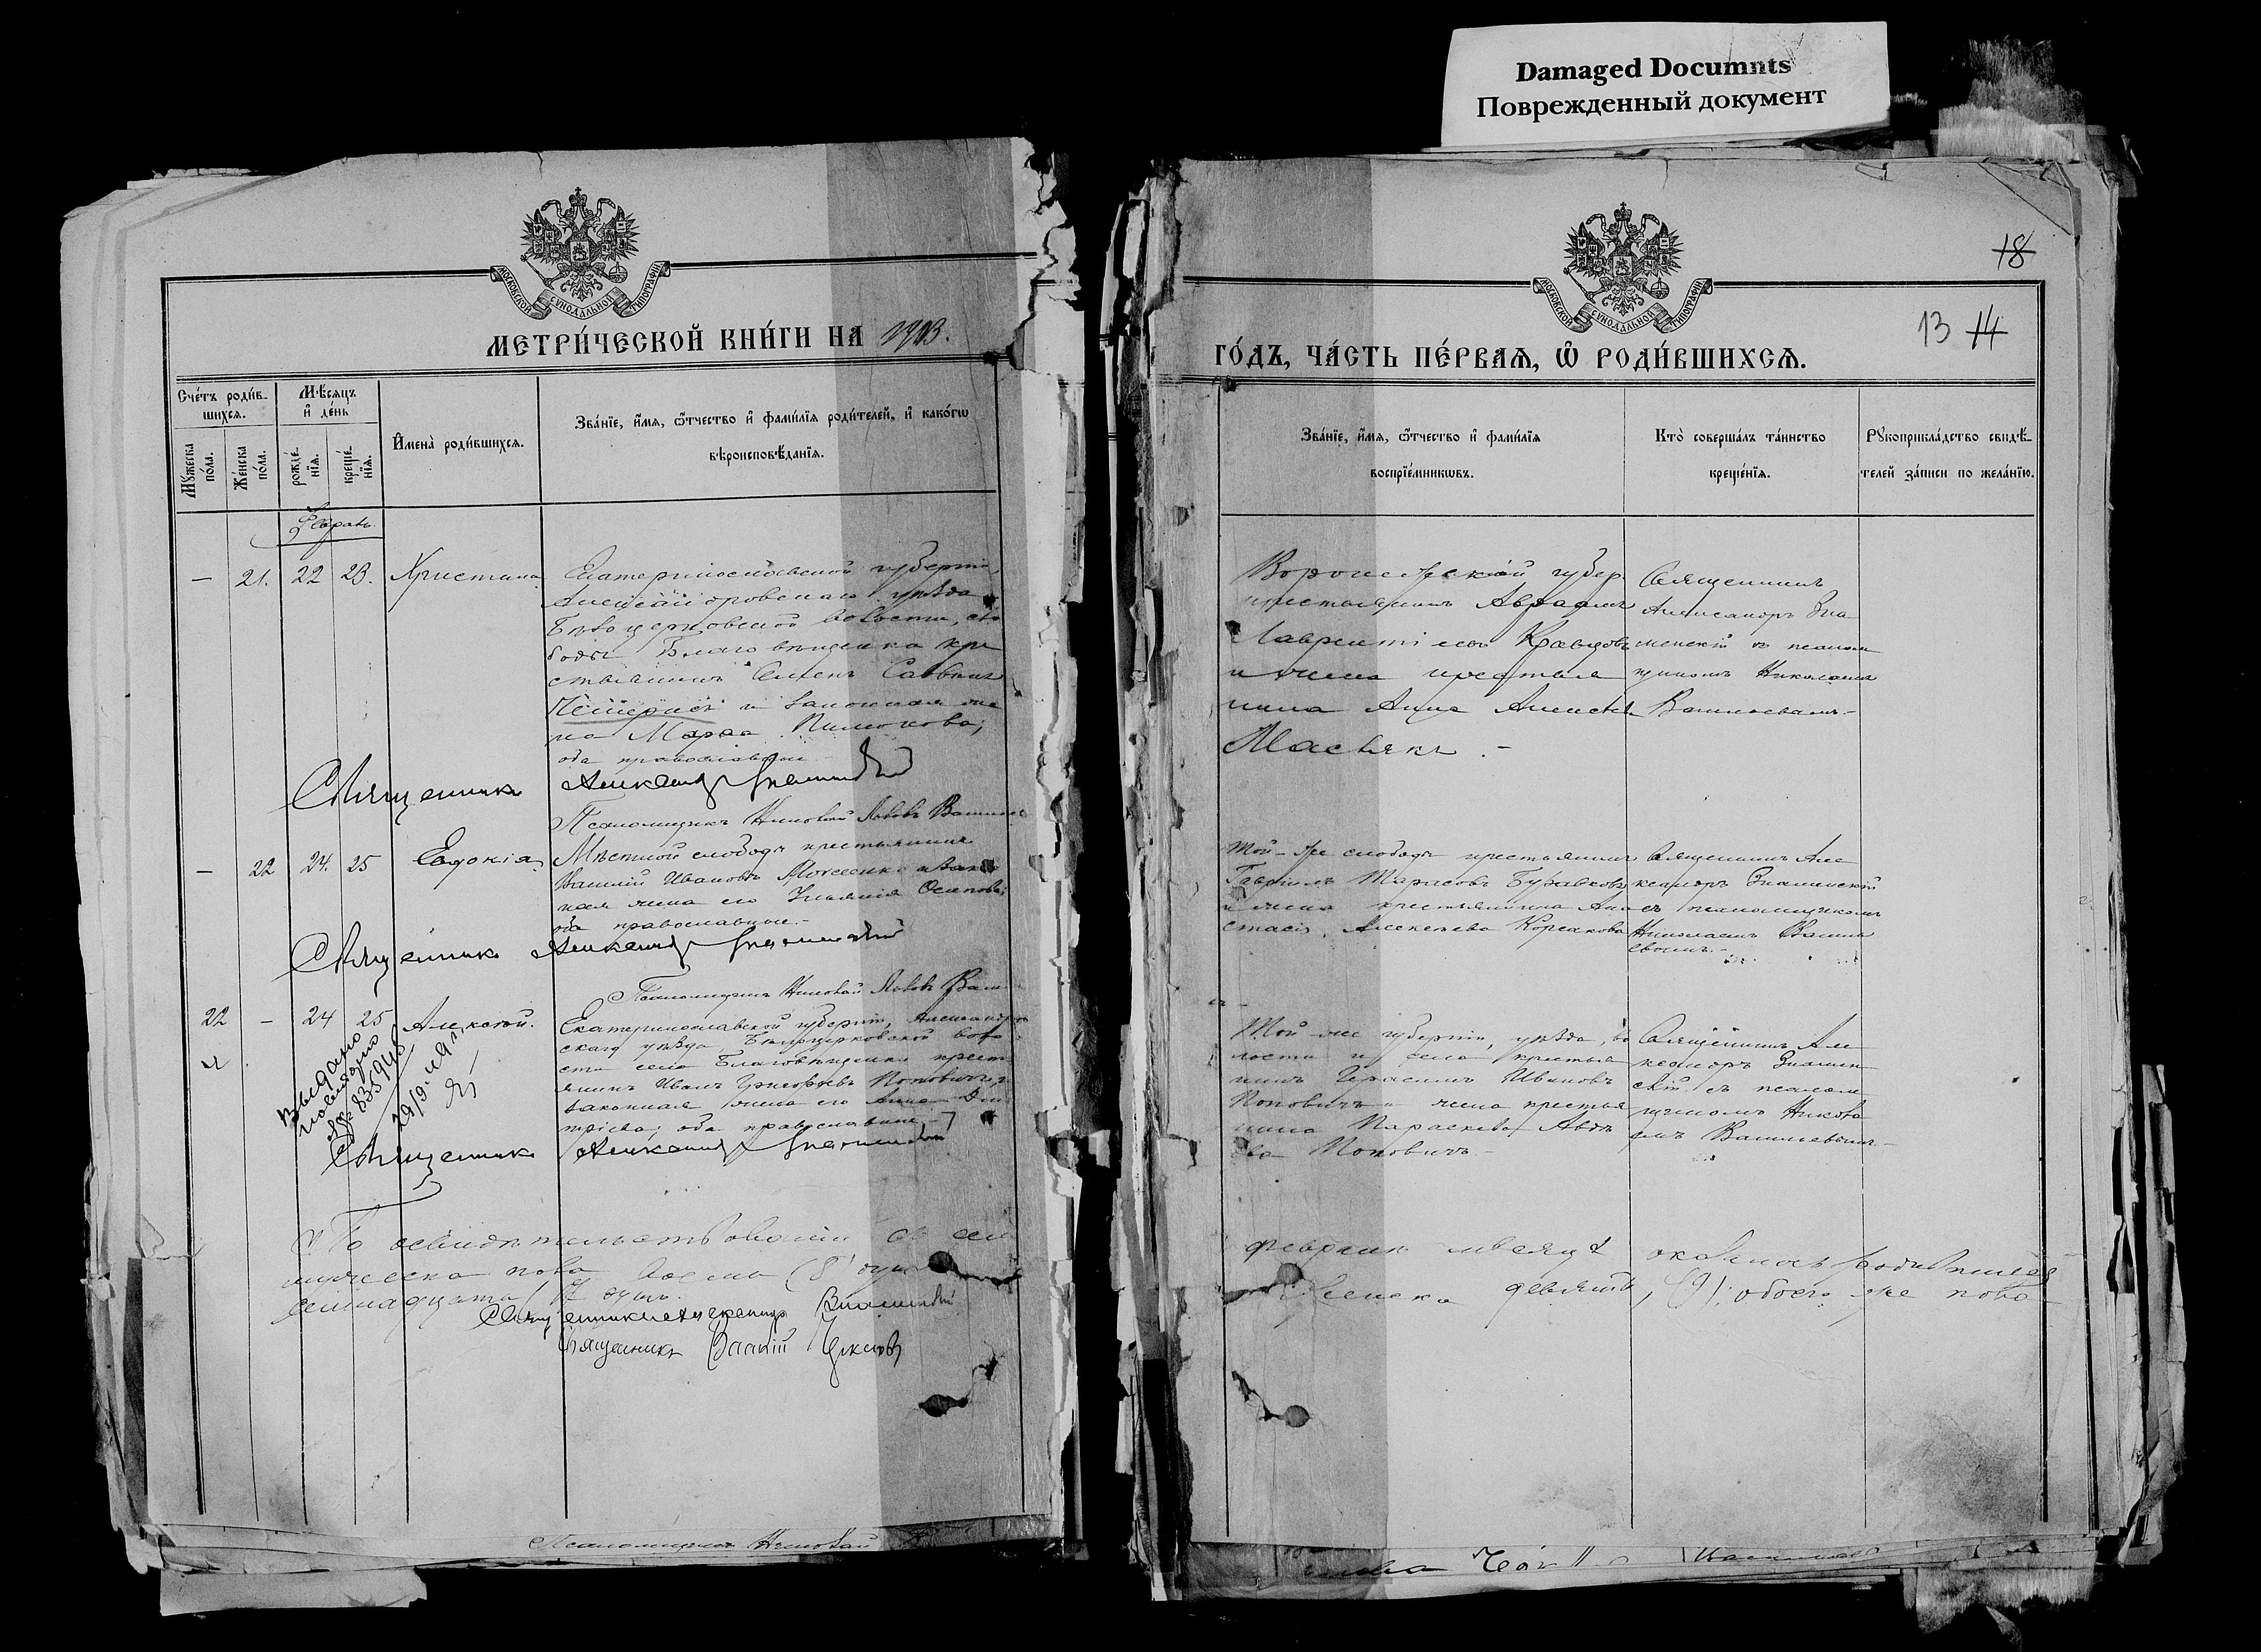 Damaged Documnts
Поврежденный документ
МОСКОВСКОЙ СѴНОДАЛЬНОЙ ТИПОГРАФІИ
МЕТРИ́ЧЕСКОЙ КНИ́ГИ НА 1913.
Сче́тъ роди́в-
шихся.
Мѣсяцъ
и҆ де́нь
Мꙋжеска
по́ла.
Же́нска
по́ла.
рожде́-
нїя.
креще́-
нїя.
И҆мена̀ роди́вшихся.
Зва́нїе, и҆́мя, ѻ҆́тчество и҆ фами́лїя роди́телей, и҆ како́гѡ
вѣроисповѣ́данїя.
Февраль
— 21. 22 23. Христина
Екатеринославской губерніи,
Александровскаго уѣзда
Бѣлоцерковской волости, сло
боды Благовѣщенка кре
стьянинъ Семенъ Саввинъ
и законная же
на Марѳа
оба православные
Священникъ Александръ Знаменскій
Псаломщикъ Николай Львовъ Василь
— 22 24. 25 Евдокія
Мѣстной слободы крестьянинъ
Василій Ивановъ Моисеенко и закон
ная жена его Ульянія Осипова;
оба православные.-
Священникъ Александръ Знаменскій
Псаломщикъ Николай Львовъ Васил
22 — 24 25 Алексѣй.
Екатеринославской губерніи, Александров
скаго уѣзда, Бѣлоцерковской воло
сти села Благовѣщенки крест
янинъ Иванъ Григорьевъ Поповичъ и
законная жена его Анна Дми
тріева; оба православные.-
Выдано
повторно
№ 835946
29/9.
Священникъ Александръ Знаменскій
По освидѣтельствованіи въ сей
мужеска пола восемь (8) душ
семнадцать 17 душъ.
Священникъ Александръ Знаменскій
Священникъ
Псаломщикъ Николай
18
13 14
МОСКОВСКОЙ СѴНОДАЛЬНОЙ ТИПОГРАФІИ
ГО́ДЪ, ЧА́СТЬ ПЕ́РВАЯ, Ѡ҆ РОДИ́ВШИХСЯ.
Зва́нїе, и҆́мя, ѻ҆́тчество и҆ фами́лїя
воспрїе́мникѡвъ.
Кто̀ соверша́лъ та́инство
креще́нїя.
Рꙋкоприкла́дство свидѣ́-
телей за́писи по жела́нїю.
Воронежской губер.
крестьянинъ Авраамъ
Лаврентіевъ Кравцовъ
и жена крестья
нина Анна Алексѣев
Масликъ.-
Священникъ
Александръ Зна
менскій съ псалом
щикомъ Николаемъ
Васильевымъ.-
Той-же слободы крестьянинъ
Гавріилъ Тарасовъ Буравковъ
и жена крестьянина Ана
стасія Алексѣева Корсакова
Священникъ Але
ксандръ Знаменскій
съ псаломщикомъ
Николаемъ Василь
евымъ.-
Той-же губерніи, уѣзда, во
лости и села крестья
нинъ Герасимъ Ивановъ
Поповичъ и жена крестья
нина Параскева Авдѣ
ева Поповичъ.-
Священникъ Але
ксандръ Знамен
скій съ псалом
щикомъ Никола
емъ Васильевымъ.-
февралѣ мѣсяцѣ оказалось родившихся
женска девять, (9); обоего же пола